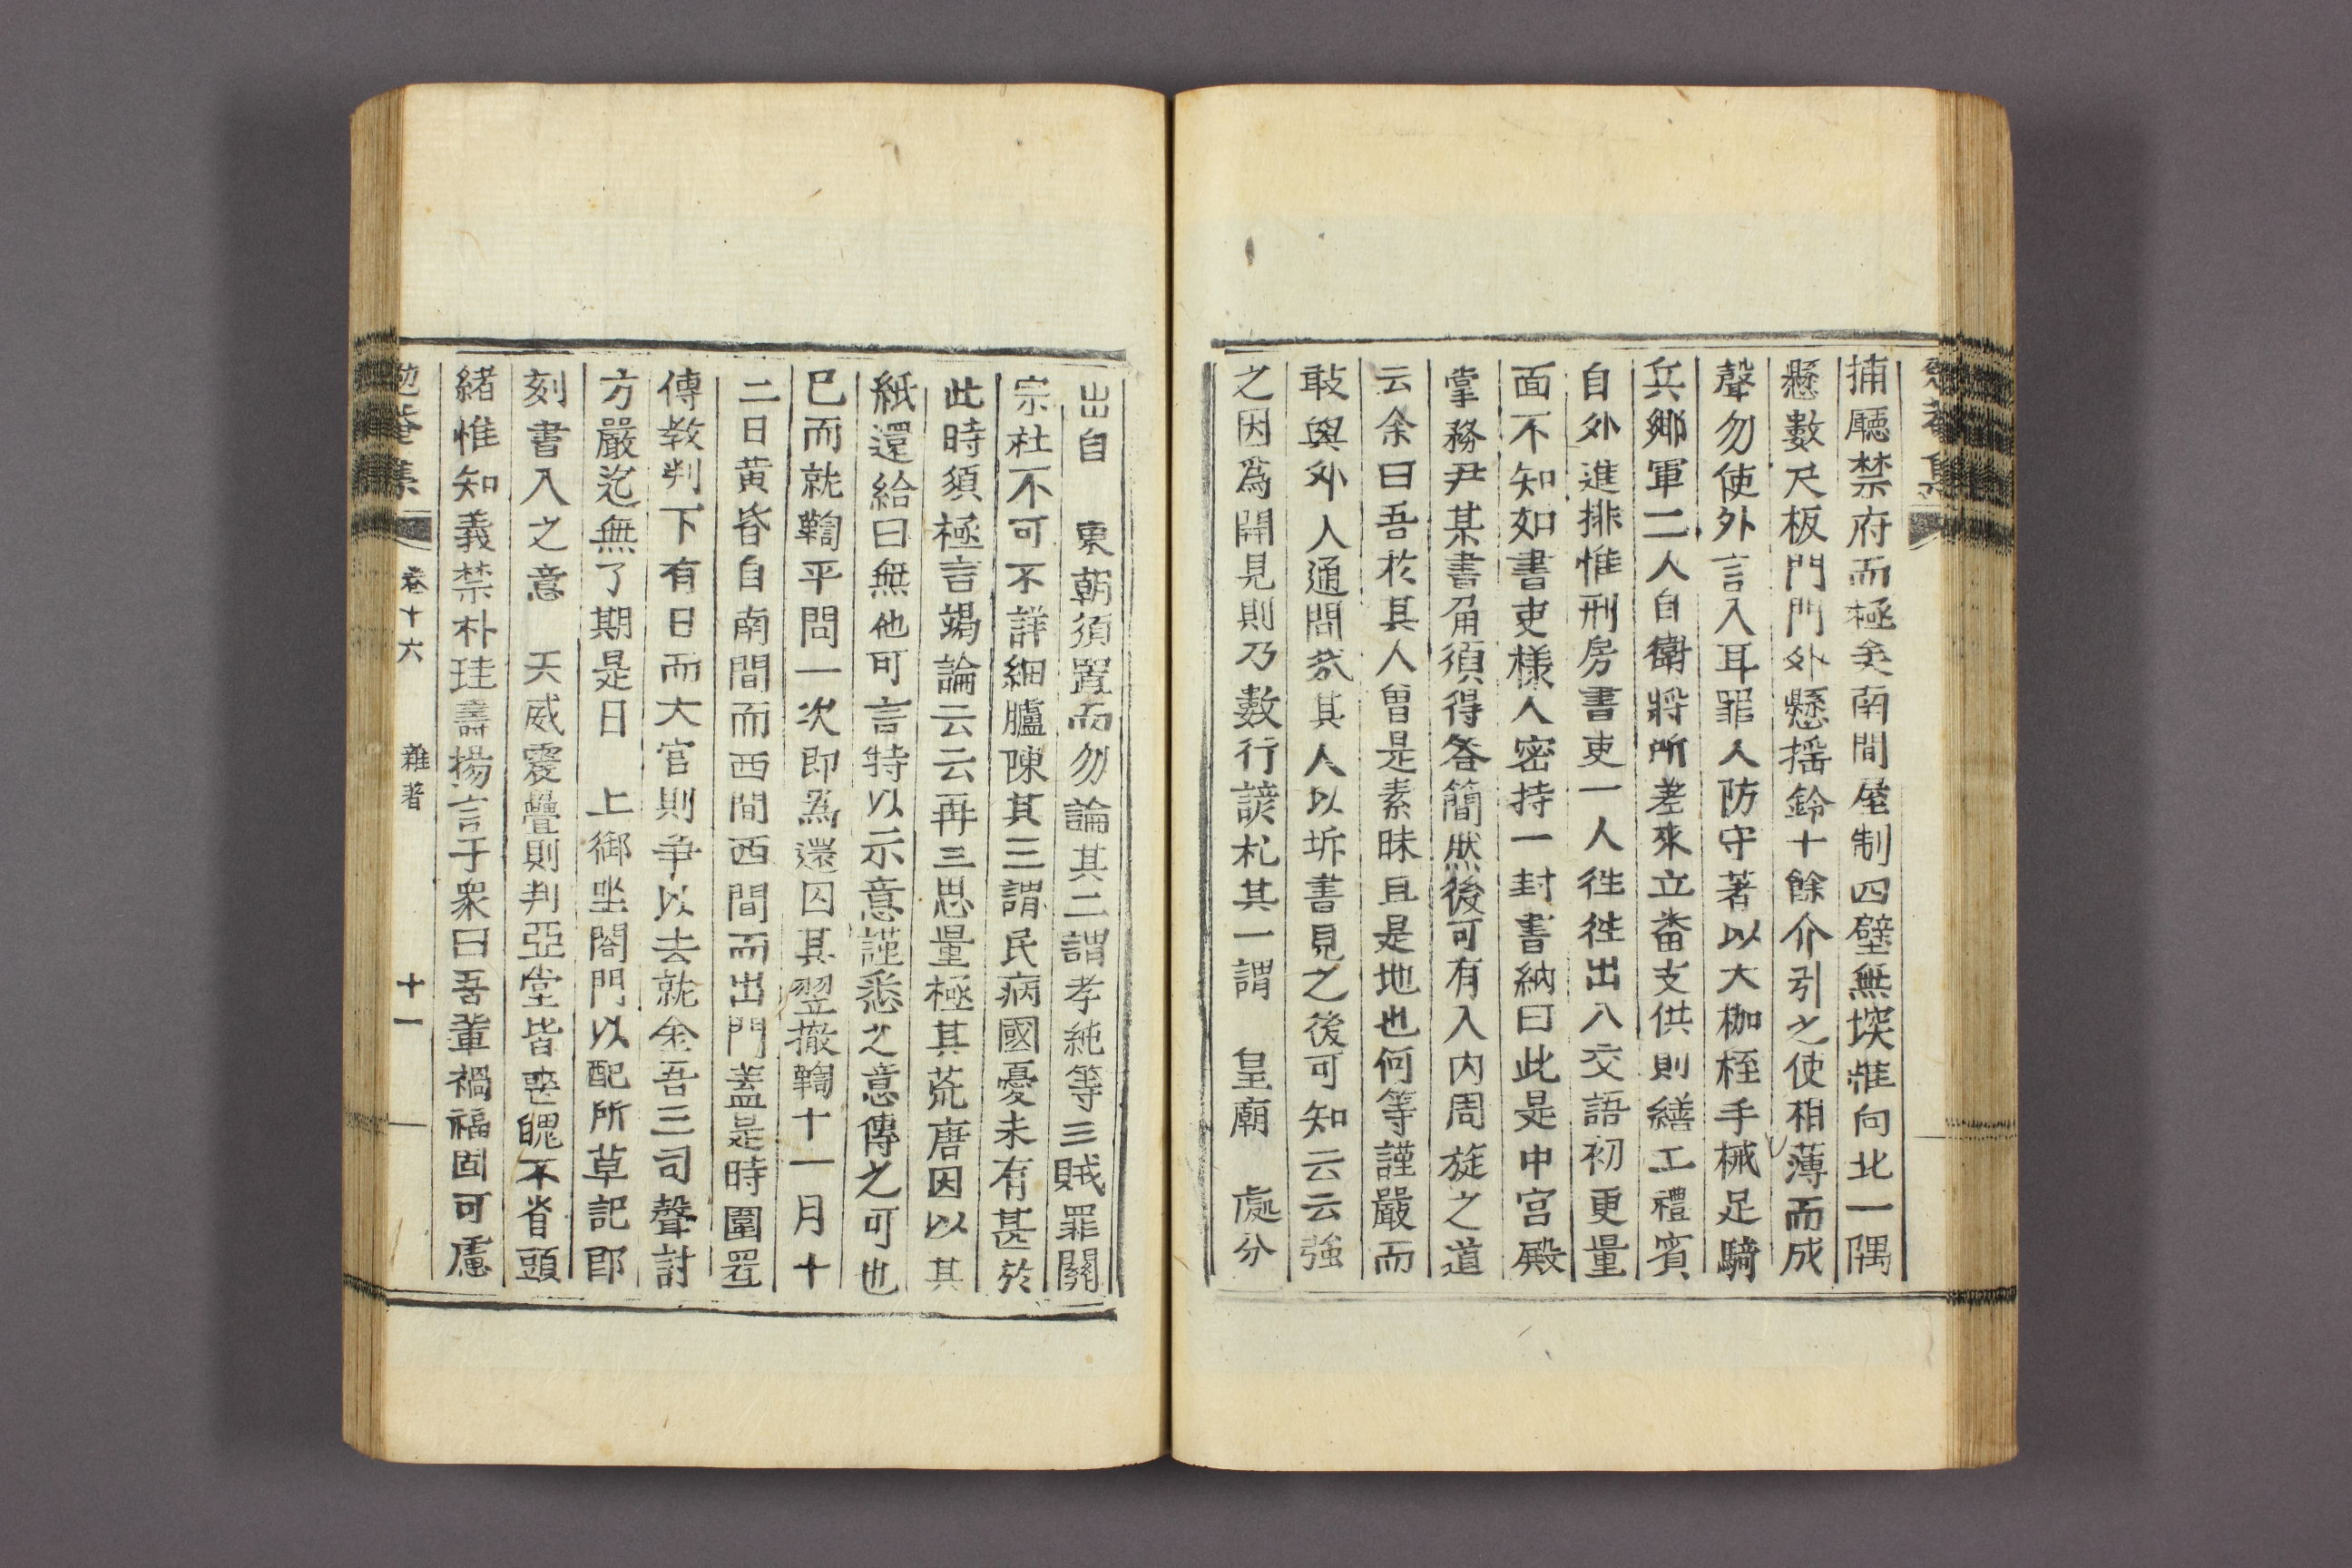 勉菴集
捕廳禁府而極矣南間屋制四壁無堗惟向北一隅
懸數尺板門門外懸搖鈴十餘介引之使相薄而成
聲勿使外言入耳罪人防守著以大枷桎手械足騎
兵鄕軍二人自衛將所差來立畨支供則繕工禮賓
自外進排惟刑房書吏一人徃徃出入交語初更量
面不知如書吏樣人密持一封書納曰此是中宮殿
掌務尹某書角須得答簡然後可有入內周旋之道
云余曰吾於其人曾是素昧且是地也何等謹嚴而
敢與外人通問哉其人以坼書見之後可知云云強
之因爲開見則乃數行諺札其一謂　皇廟　處分
出自　東朝須置而勿論其二謂孝純等三賊罪關
宗社不可不詳細臚陳其三謂民病國憂未有甚於
此時須極言竭論云云再三思量極其荒唐因以其
紙還給曰無他可言特以示意謹悉之意傳之可也
已而就鞫平問一次卽爲還囚其翌撤鞫十一月十
二日黃昏自南間而西間西間而出門盖是時圍置
傳敎判下有日而大官則爭以去就金吾三司聲討
方嚴迄無了期是日　上御坐閤門以配所草記卽
刻書入之意　天威震疊則判亞堂皆喪魄不省頭
緖惟知義禁朴珪壽揚言于衆曰吾輩禍福固可慮
勉菴集　卷十六　雜著　十一